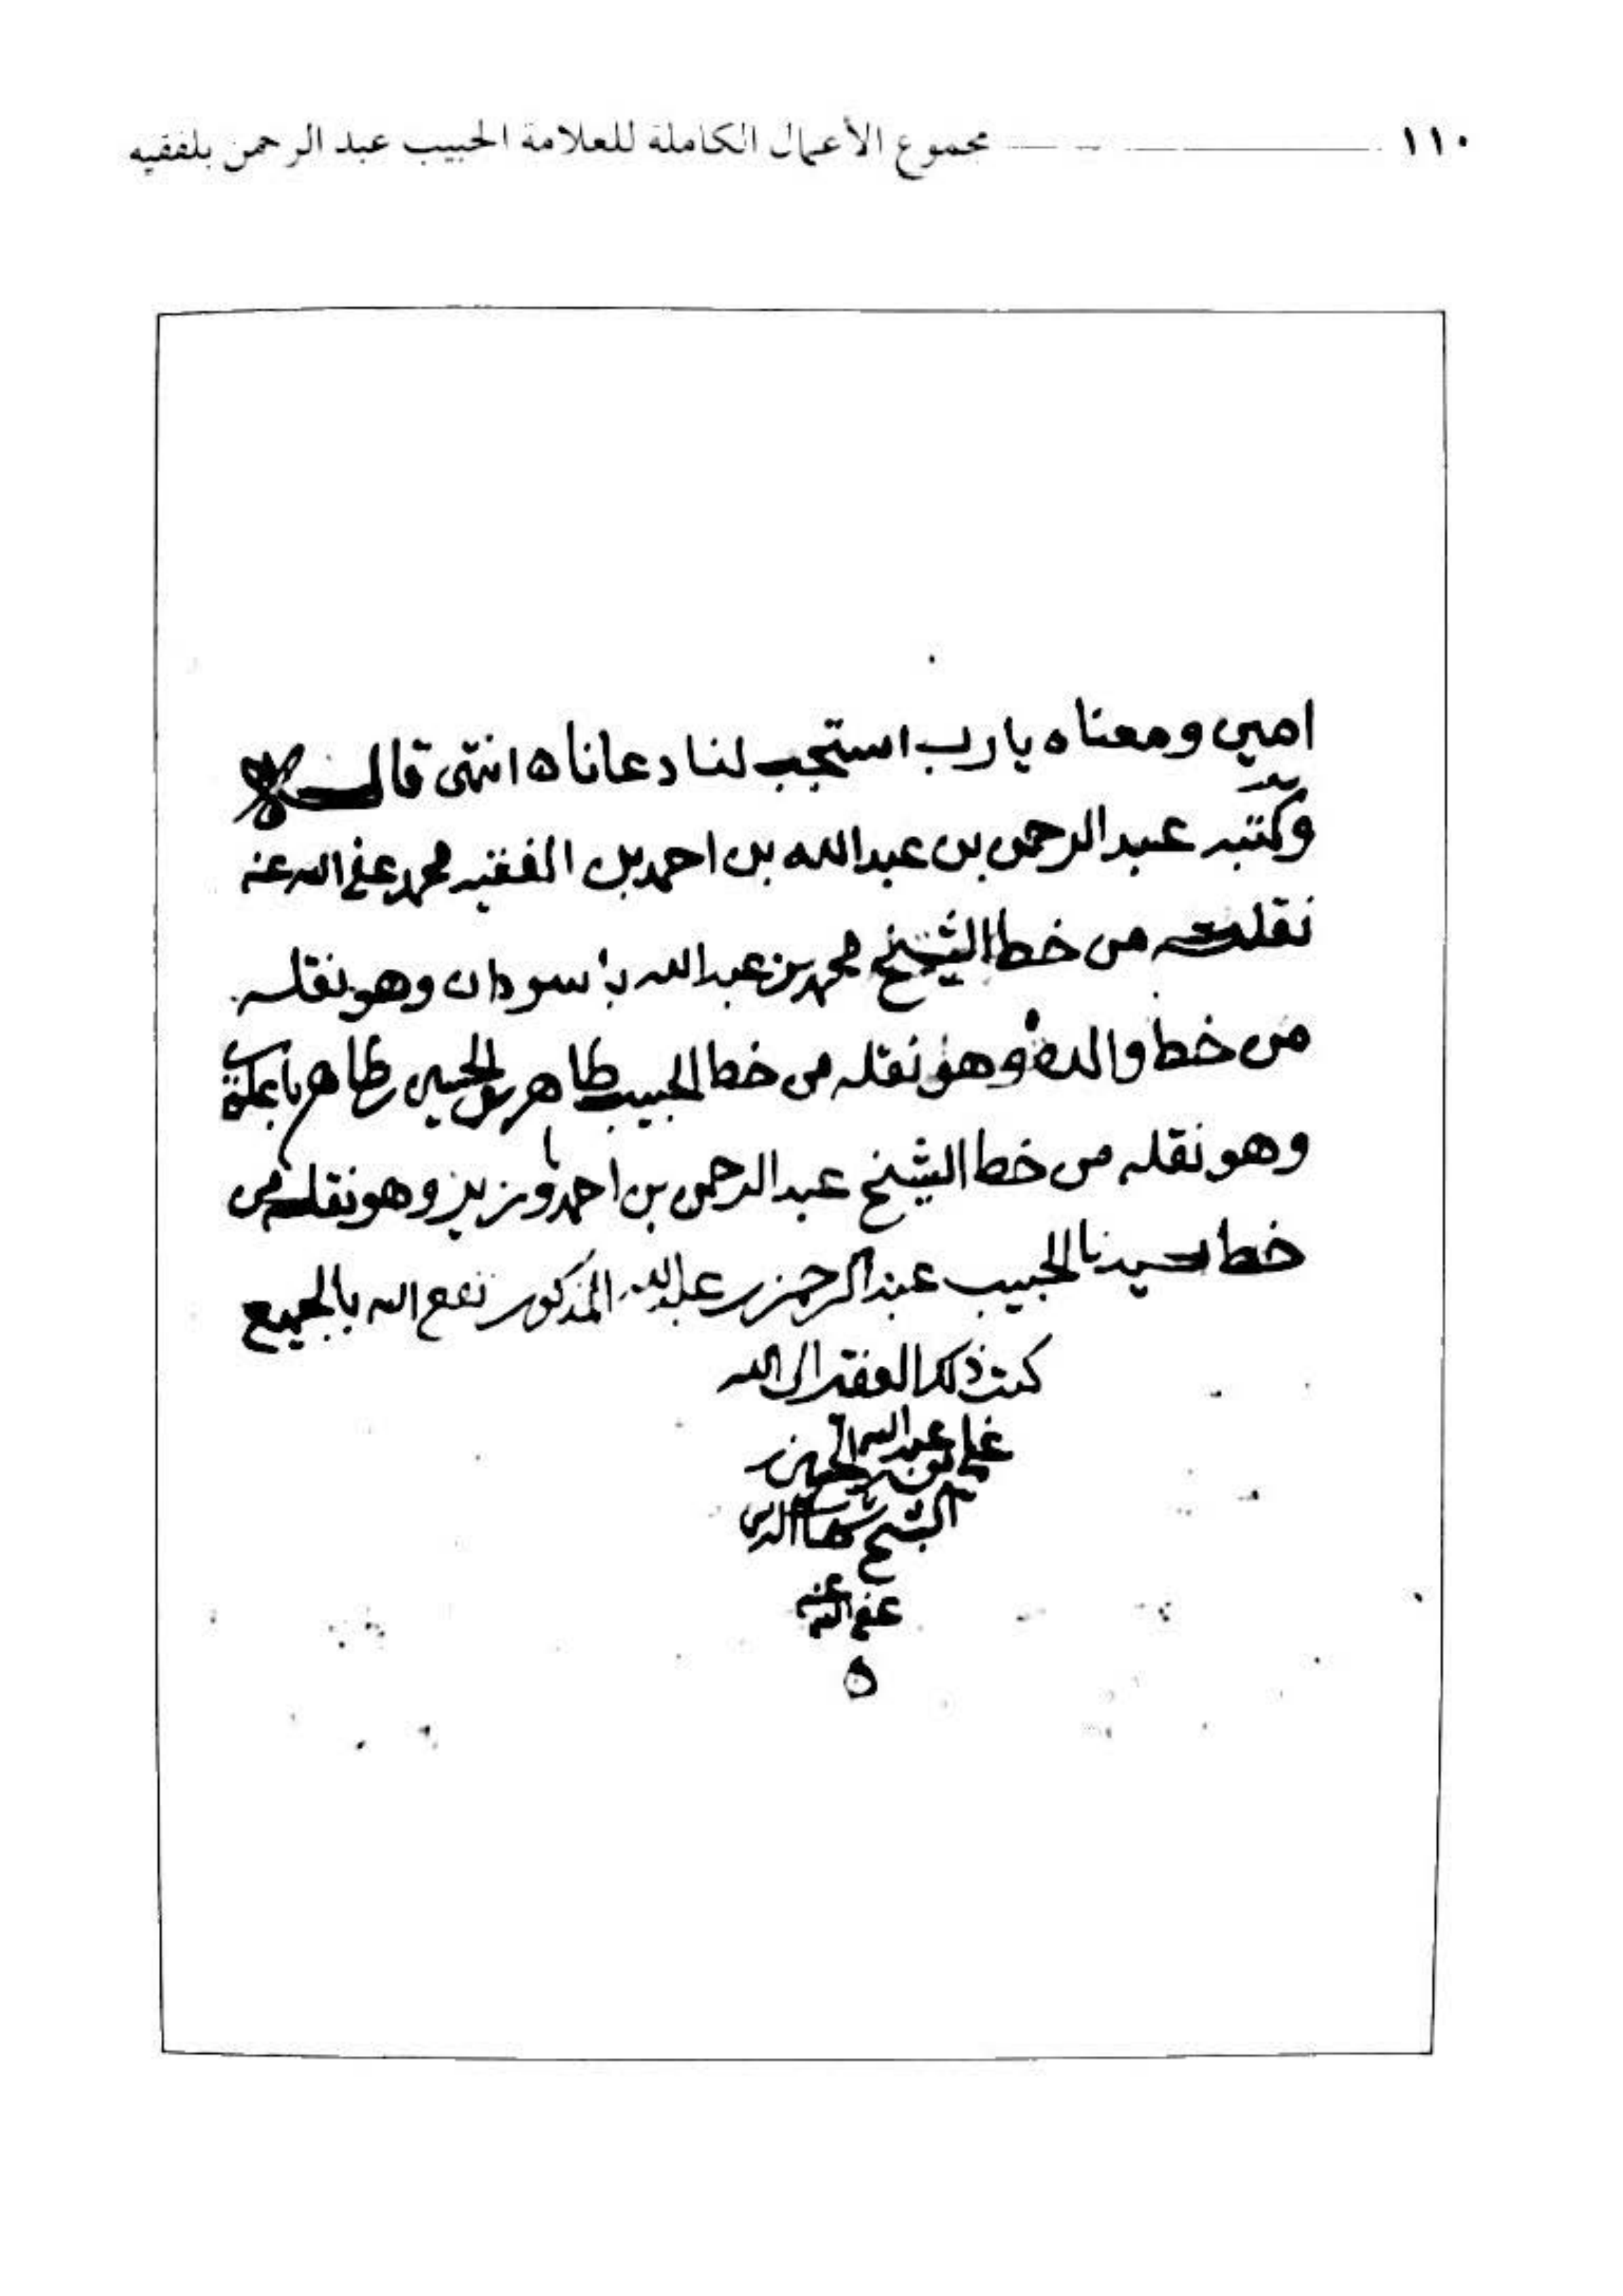 ١١٠ مجموع الأعمال الكاملة للعلامة الحبيب عبد الرحمن بلفقيه
امين ومعناه يا رب استجب لنا دعانا ه انتهى قال
وكتبه عبد الرحمن بن عبدالله بن احمد بن الفقيه محمد عفى الله عنه
نقلته من خط الشيخ محمد بن عبدالله باسودان وهو نقله
من خط والده وهو نقله من خط الحبيب طاهر بن الحسين بن طاهر
وهو نقله من خط الشيخ عبد الرحمن بن احمد باوزير وهو نقله من
خط سيدنا الحبيب عبد الرحمن بن عبدالله المذكور نفع الله بالجميع
كتب ذلك الفقير الى الله
علي
الشيخ شهاب الدين
عفى الله عنه
ه